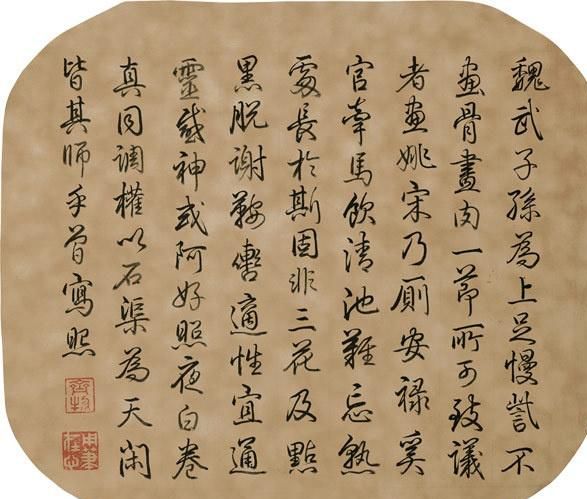 魏武子孫為上足慢訾不
画骨畫肉一節所可致議
者画姚宋乃廁安禄奚
官牽馬飲清池難忘熟
處長於斯固非三花及點
黑脱謝鞍轡適性宜通
靈感神或阿好照夜白卷
真同調權以石渠為天閑
皆其師乎曾寫照
齊物